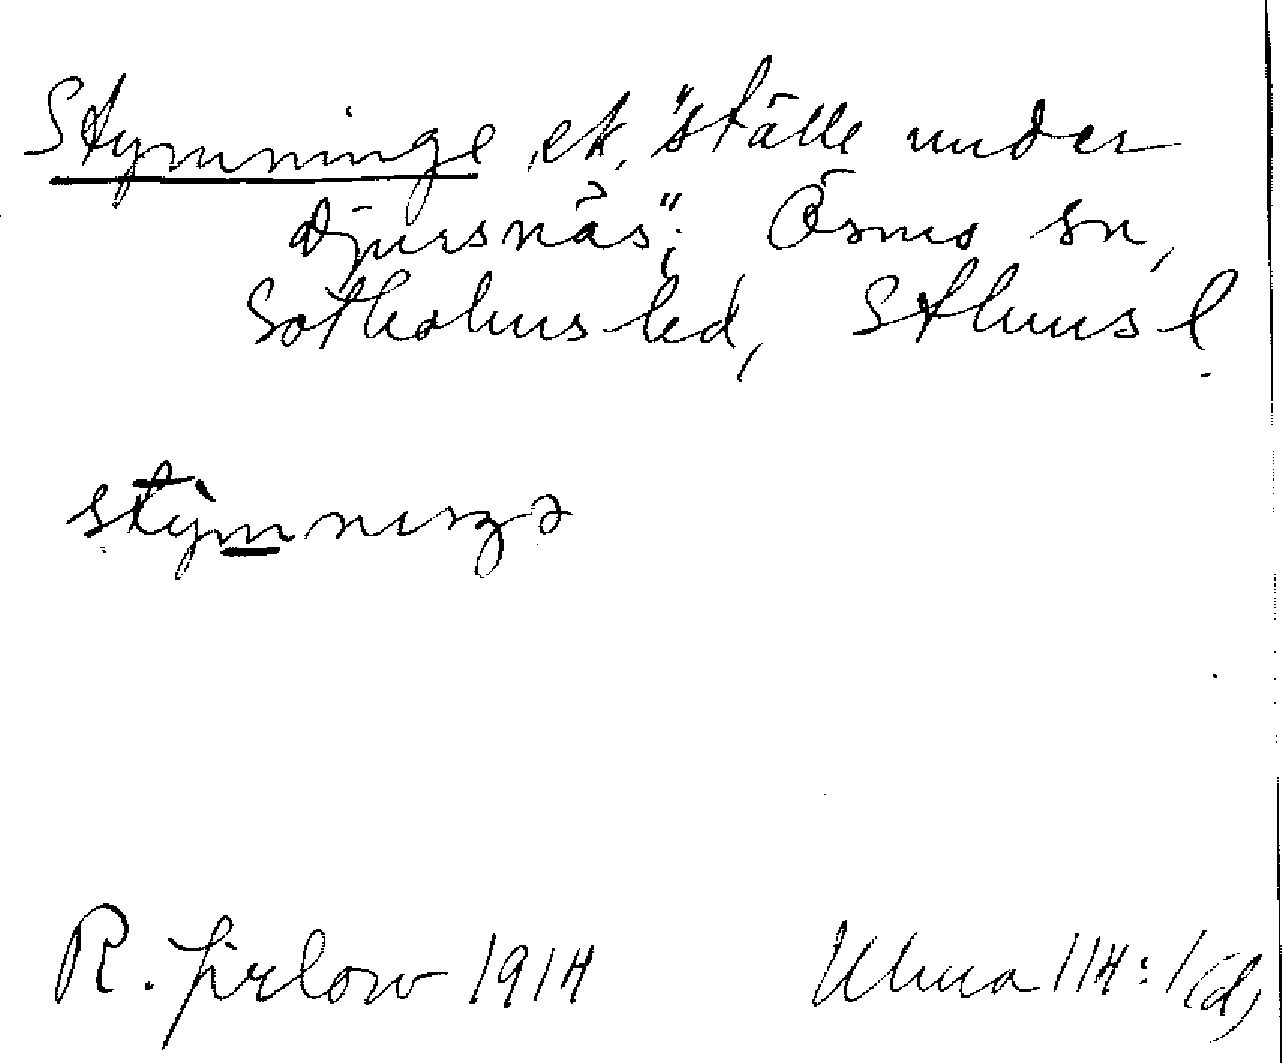 Stymninge, ek, "ställe under
Djursnäs"; Ösmo sn,
Sotholms hd, Sthms l.
stỳmnıŋgə
R. Jirlow 1914
Uma 114:1(d)